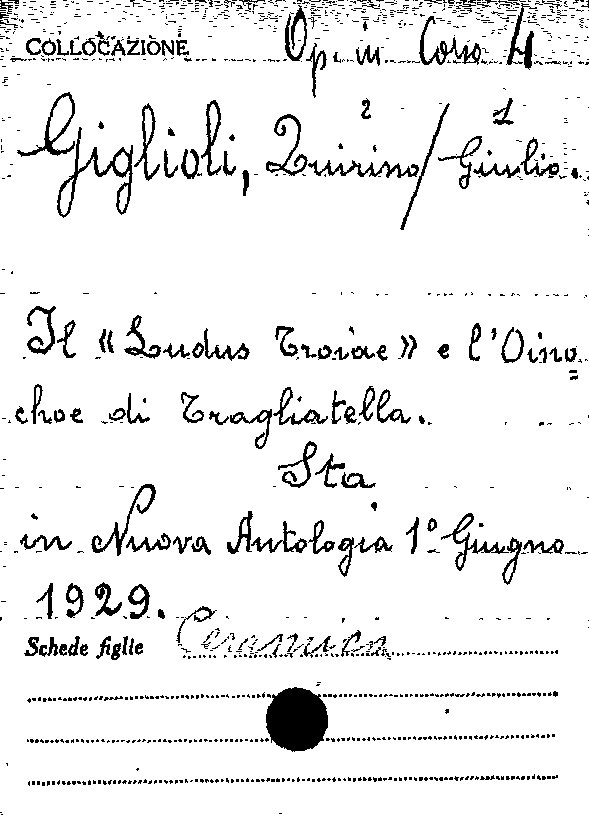 COLLOCAZIONE Op. in Corso 4
2 1
Giglioli, Quirino/Giulio.
Il «Ludus Troiae» e l'Oino=
choe di Tragliatella.
Sta
in Nuova Antologia 1º Giugno
1929.
Schede figlie Ceramica